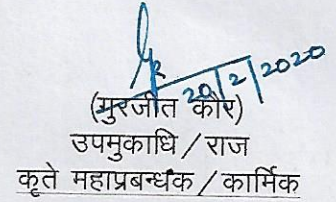 20/2/2020
(गुरजीत कौर)
उपमुकाधि / राज
कृते महाप्रबन्धक / कार्मिक